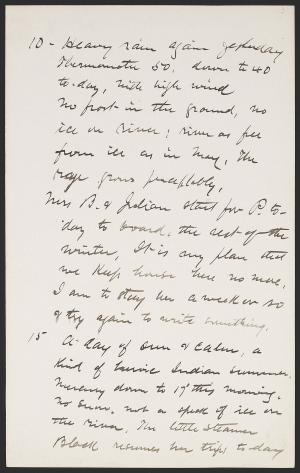 10 - Heavy rain again yesterday
Thermometer 50, down to 40
to-day, with high wind
No frost in the ground, no
ice on river; river as free
from ice as in May, The
rye grows perceptably,
Mrs B. & Julian start for P. to-
day to board, the rest of the
winter, It is my plan that
we keep house here no more,
I am to stay here a week or so
& try again to write something.
15 A day of sun & calm, a
kind of Indian summer.
Mercury down to 17 this morning.
No snow, not a speck of ice on
the river, The little steamer
Black resumes her trips to-day